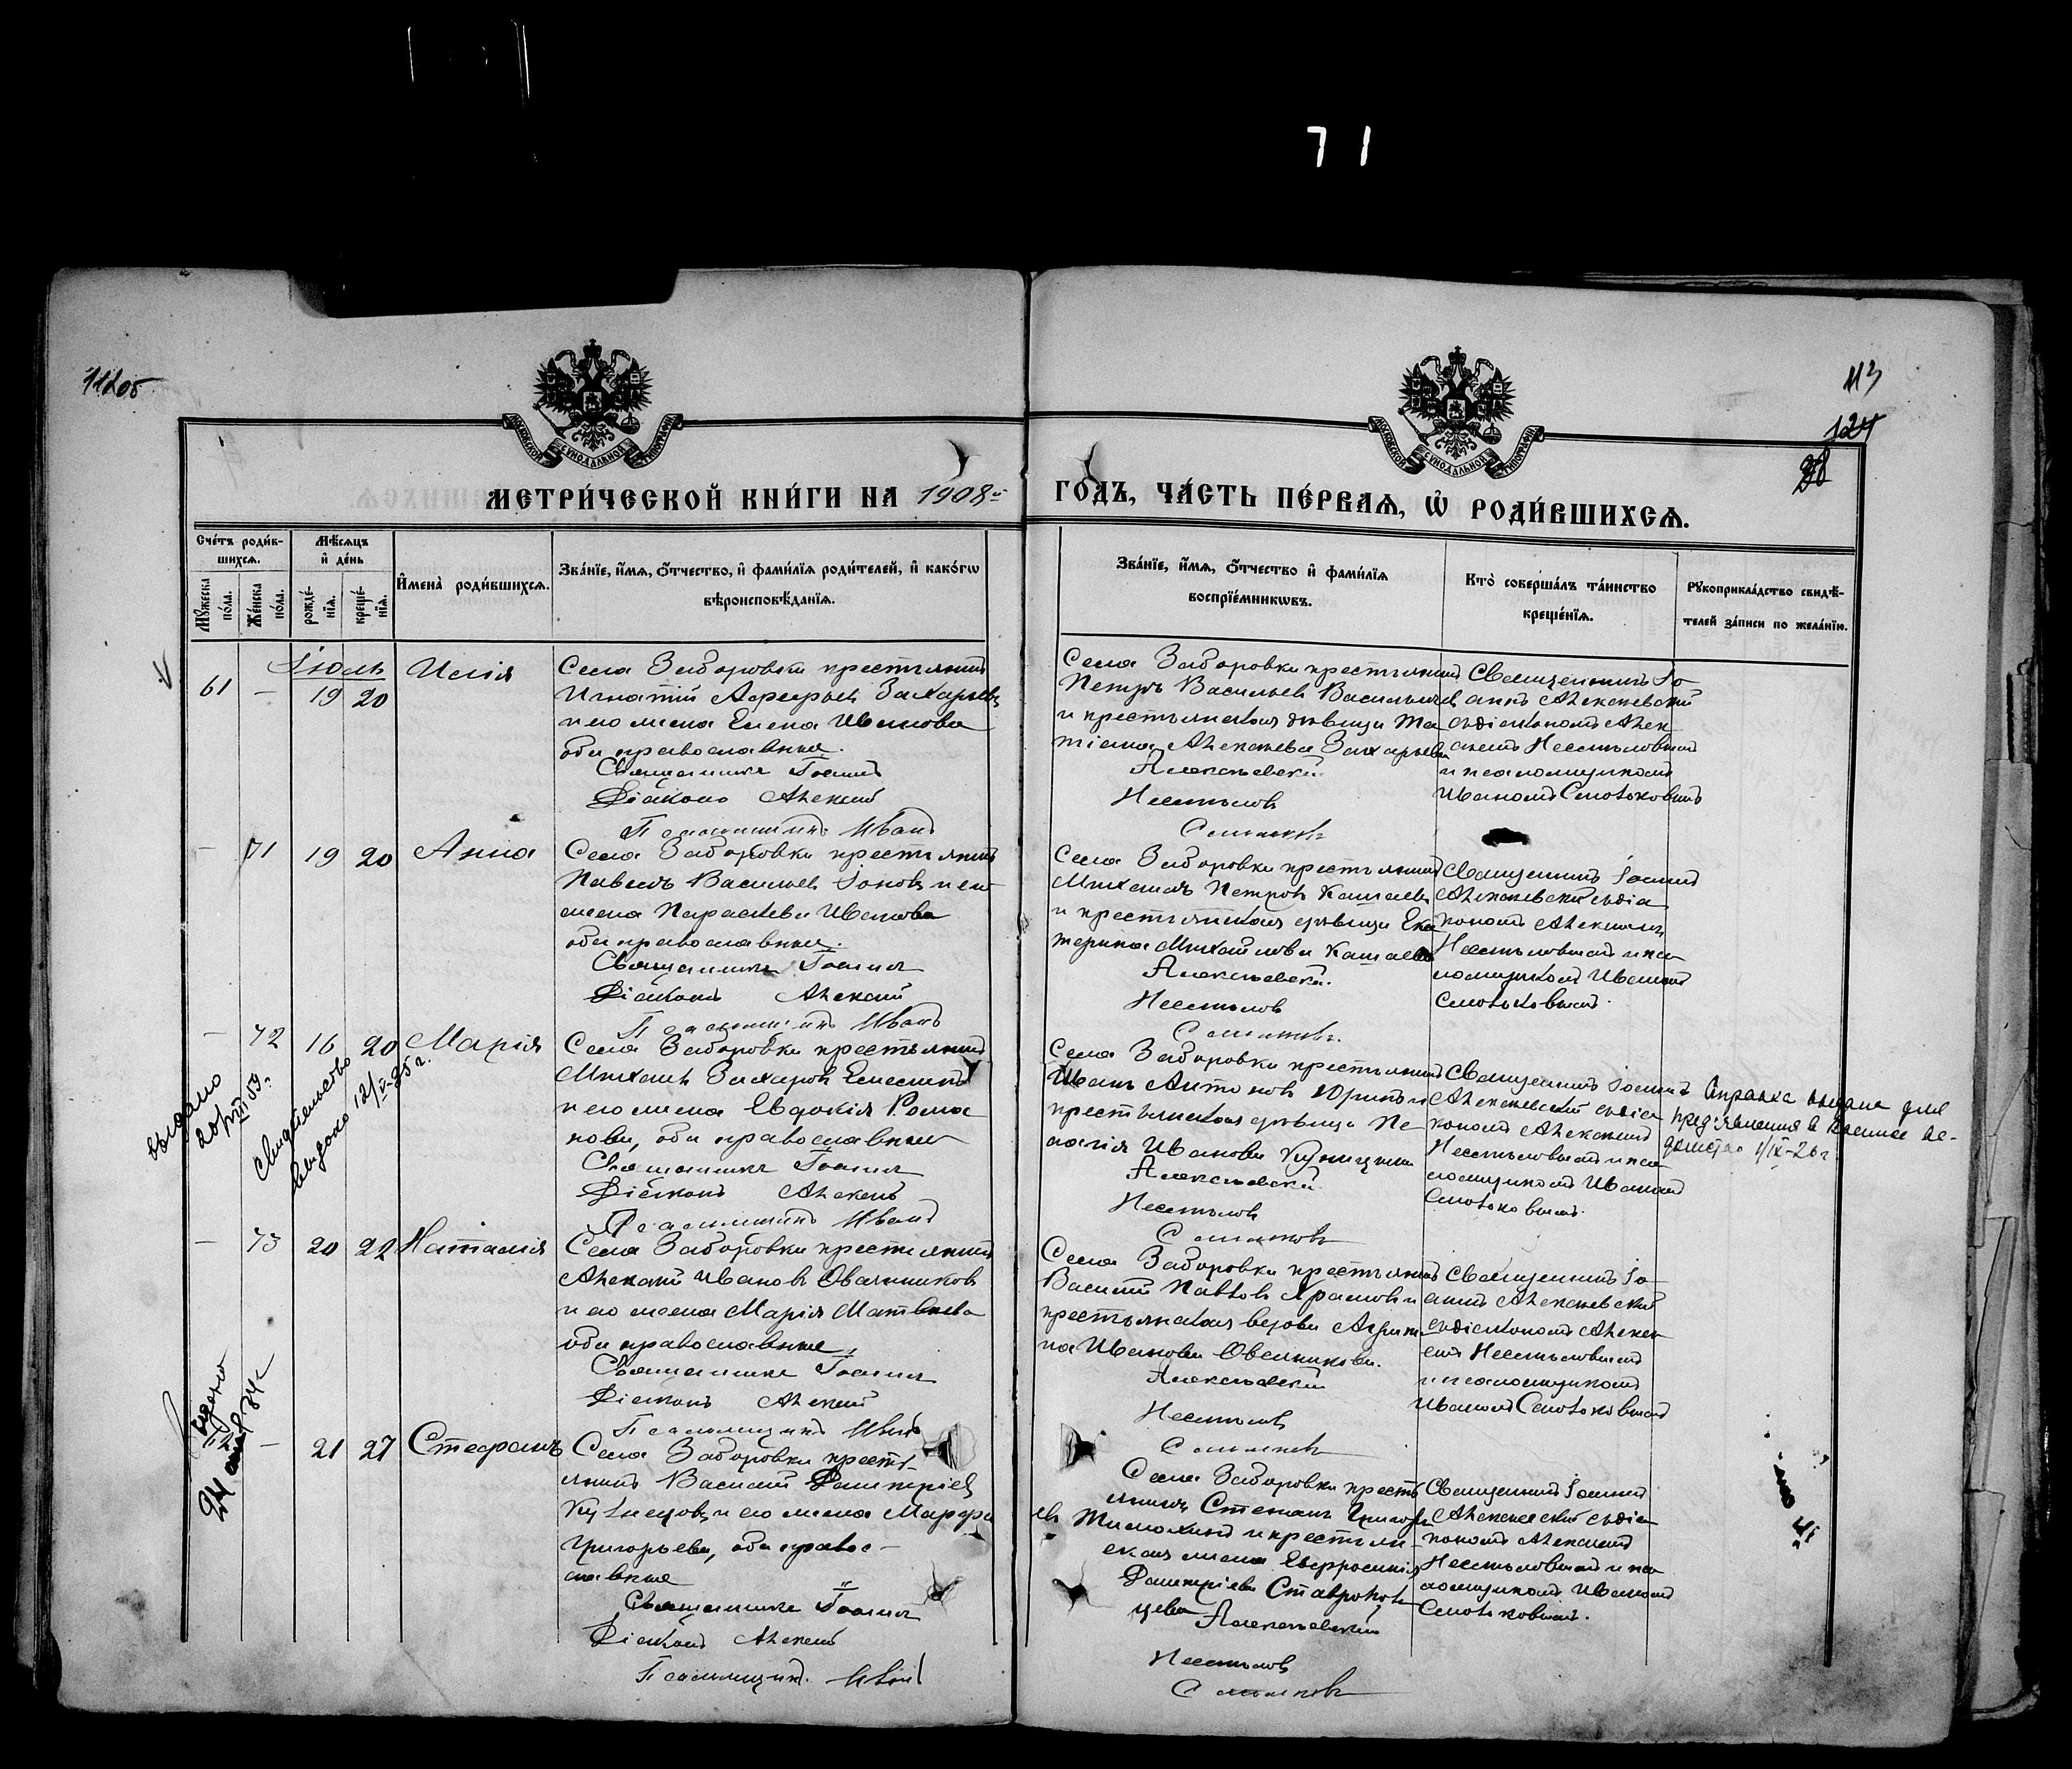 71
112об
113
124
МОСКОВСКОЙ СѴНОДАЛЬНОЙ ТИПОГРАФІИ
МОСКОВСКОЙ СѴНОДАЛЬНОЙ ТИПОГРАФІИ
МЕТРИ́ЧЕСКОЙ КНИ́ГИ НА 1908й
ГО́ДЪ, ЧА́СТЬ ПЕ́РВАѦ, Ѡ҆ РОДИ́ВШИХСѦ.
Сче́тъ роди́в-
шихсѧ.
Мꙋ́жеска по́ла.
Же́нска по́ла.
Мѣ́сѧцъ
и҆ де́нь
рожде́-
нїѧ.
креще́-
нїѧ.
И҆мена̀ роди́вшихсѧ.
Зва́нїе, и҆́мѧ, ѻ҆́тчество, и҆ фами́лїѧ роди́телей, и҆ како́гѡ
вѣроисповѣ́данїѧ.
Зва́нїе, и҆́мѧ, ѻ҆́тчество и҆ фами́лїѧ
воспрїе́мникѡвъ.
Кто̀ соверша́лъ та́инство
креще́нїѧ.
Рꙋкоприкла́дство свидѣ́-
телей за́писи по жела́нїю.
Іюль
61 – 19 20 Илія
Села Заборовки крестьянинъ
Игнатій Аѳерьевъ Захаровъ
и его жена Елена Иванова
оба православные.
Священникъ Іоаннъ
Діаконъ Алексій
Псаломщикъ Иванъ
Села Заборовки крестьянинъ
Петръ Васильевъ Васильевъ
и крестьянская дѣвица Та
тіана Алексѣева Захарьева
Алексѣевскій
Нестѣловъ
Священникъ Іо-
аннъ Алексѣевскій
съ діакономъ Алек
сѣемъ Нестѣловымъ
и псаломщикомъ
Иваномъ
– 71 19 20 Анна
Села Заборовки крестьянинъ
Павелъ Васильевъ Іоновъ и его
жена Параскева Иванова
оба православные.
Священникъ Іоаннъ
Діаконъ Алексій
Псаломщикъ Иванъ
Села Заборовки крестьянинъ
Михаилъ Петровъ Кашаевъ
и крестьянская дѣвица Ека
терина Михайлова Кашаева
Алексѣевскій.
Нестѣловъ
Священникъ Іоаннъ
Алексѣевскій съ діа
кономъ Алексѣемъ
Нестѣловымъ и пса
ломщикомъ Иваномъ
– 72 16 20 Марія
выдано
Свидѣтельство
выдано 12/V-25 г.
Села Заборовки крестьянинъ
Михаилъ Захаровъ
и его жена Евдокія Рома
нова, оба православные
Священникъ Іоаннъ
Діаконъ Алексѣй
Псаломщикъ Иванъ
Села Заборовки крестьянинъ
Иванъ Антоновъ и
крестьянская дѣвица Пе
лагія Иванова Кузнецова
Алексѣевскій
Нестѣловъ
Священникъ Іоаннъ
Алексѣевскій съ діа
кономъ Алексѣемъ
Нестѣловымъ и пса
ломщикомъ Иваномъ
Справка выдана для
предъявления в Военное ве-
1/IX-26 г.
– 73 20 22 Наталія
Села Заборовки крестьянинъ
Алексѣй Ивановъ Овчинниковъ
и его жена Марія Матвѣева
оба православные.
Священникъ Іоаннъ
Діаконъ Алексѣй
Псаломщикъ Иванъ
Села Заборовки крестьянинъ
Василій Павловъ Храмовъ и
крестьянская вдова Агрипи
на Иванова Овчинникова.
Алексѣевскій
Нестѣловъ
Священникъ Іо-
аннъ Алексѣевскій
съ діакономъ Алек
сѣемъ Нестѣловымъ
и псаломщикомъ
Иваномъ
62 – 21 27 Стефанъ
Села Заборовки кресть-
янинъ Василій Димитріевъ
Кузнецовъ и его жена Марѳа
Григорьева, оба право-
славные
Священникъ Іоаннъ
Діаконъ Алексѣй
Псаломщикъ. Иванъ
Села Заборовки кресть
янинъ Степанъ Григорь
евъ Тимохинъ и крестьян-
ская жена Евфросинія
Димитріева
Алексѣевскій
Нестѣловъ
Священникъ Іоаннъ
Алексѣевскій съ діа
кономъ Алексѣемъ
Нестѣловымъ и пса
ломщикомъ Иваномъ